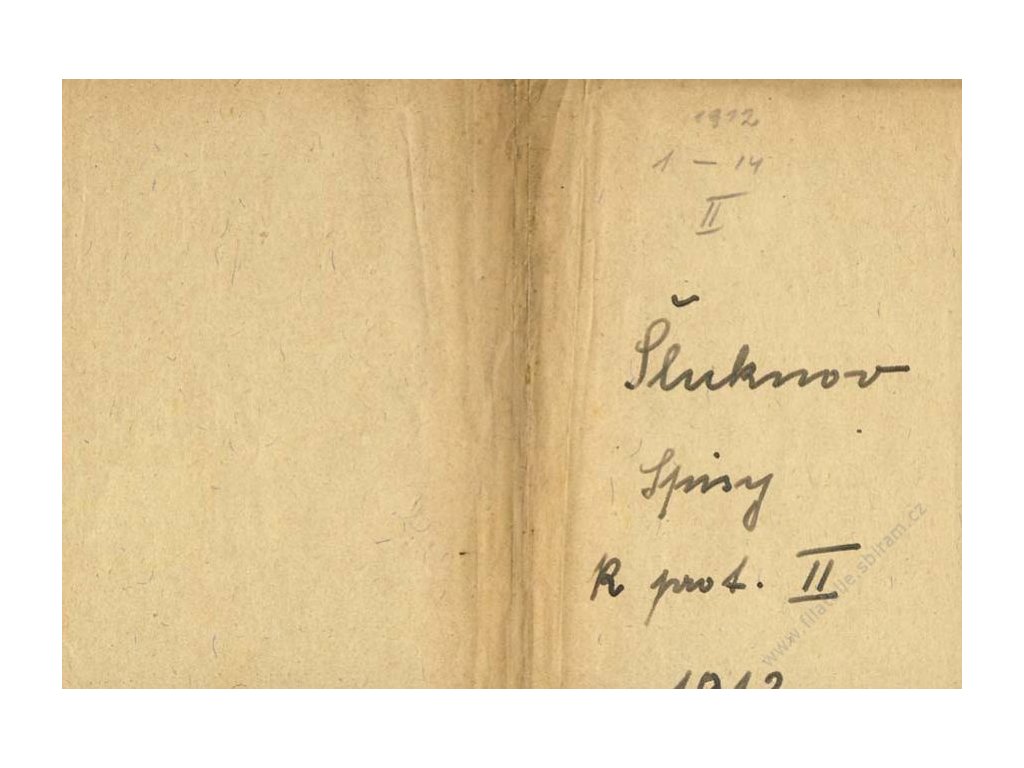 1912
1 – 14
II
Šluknov
Spisy
k prot. II
www.filatelie.sbiram.cz